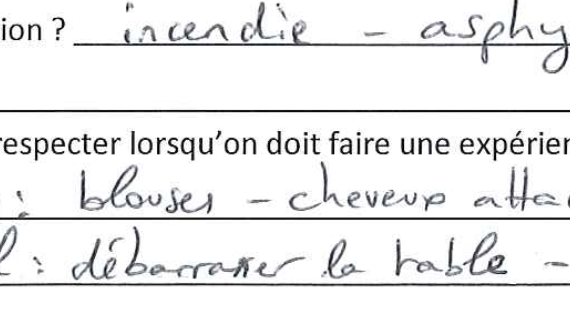 ion ? incendie - asphy
respecter lorsqu'on doit faire une expérien
: blouses - cheveux atta
l : débarrasser la table -